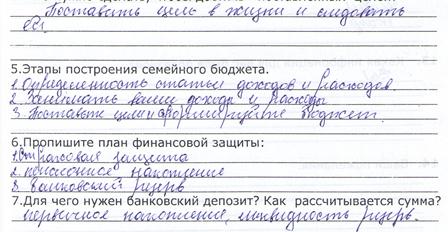 Поставить цель в жизни и следовать
ей.
5.Этапы построения семейного бюджета.
1. Определенность статьи доходов и расходов.
2. Записывать ваши доходы и расходы
3. Поставьте цели и сформируйте бюджет.
6.Пропишите план финансовой защиты:
1. Страховая защита
2. пенсионное накопление
3. Банковский резерв
7.Для чего нужен банковский депозит? Как рассчитывается сумма?
первичное накопление, ликвидность резерв.